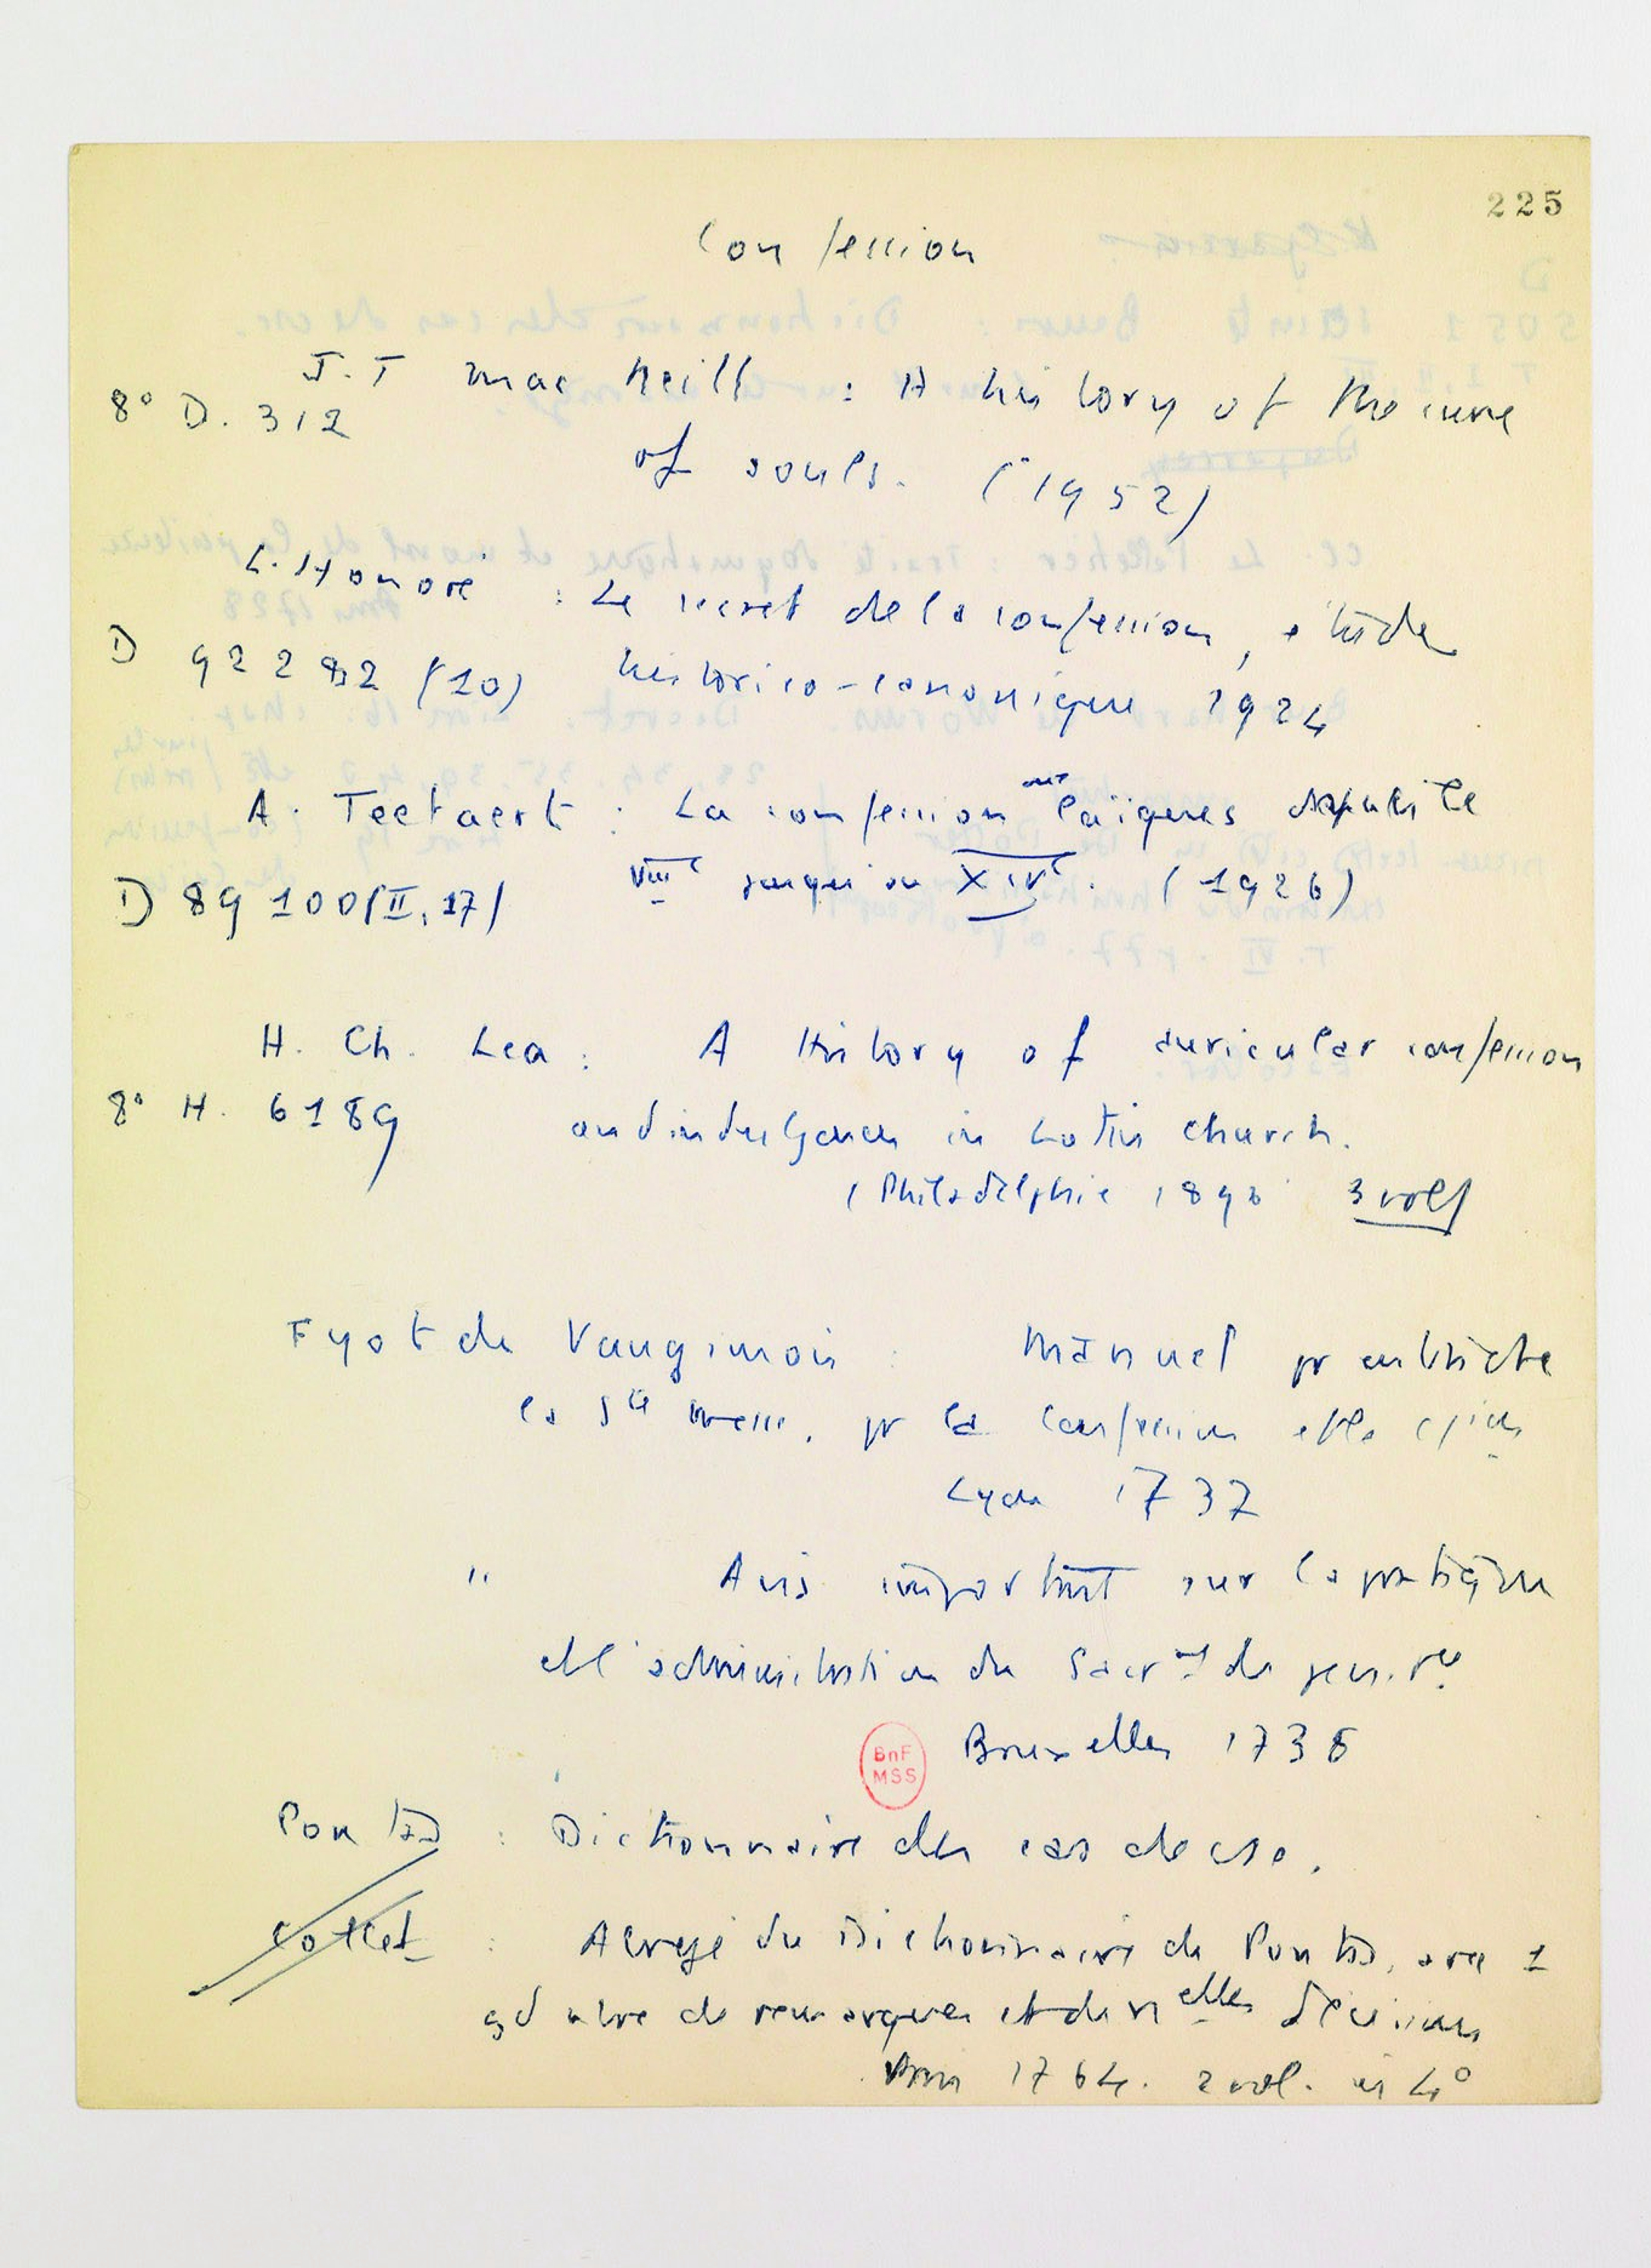 225
Confession
J.T Mac Neill : A history of the cure
8° D. 312
of souls. (1952)
L. Honoré : Le secret de la confession, étude
D 92282 (10) historico-canonique 1924
A. Teetaert : La confession aux laïques depuis le
D 89100 (II, 17) VIIIe jusqu'au XIVe. (1926)
H. Ch. Lea : A History of auricular confession
8° H. 6189 and indulgences in Latin church.
(Philadelphie 1896 3 vol)
Fyot de Vaugimois : Manuel pr entendre
la Ste messe, pr la confession et la
Lyon 1737
" Avis important sur la pratique
de l'administration du Sacrmt de
Bruxelles 1738
BnF
MSS
Pontas : Dictionnaire des cas de csce.
Collet : Abrégé du Dictionnaire de Pontas, avec 1
gd nbre de remarques et de nelles décisions
Paris 1764. 2 vol. in 4°